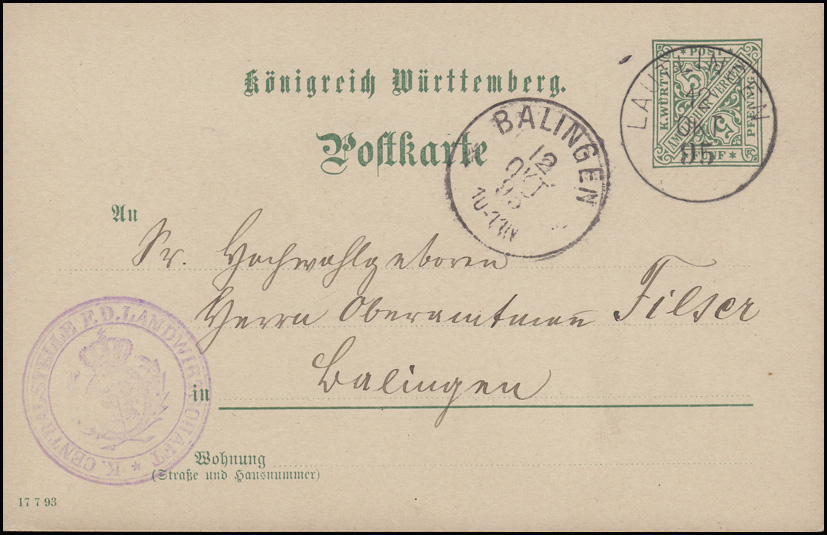 Königreich Württemberg.
Postkarte
* POST *
K. WÜRTT.
AMTLICHER VERKEHR
PFENNIG
* FÜNF *
5
5
LAUF
EN
12
OKT
95
BALINGEN
12
OKT
95
10-11 V
An
Sr. Hochwohlgeboren
Herrn Oberamtmann Filser
in Balingen
K. CENTRALSTELLE F. D. LANDWIRTSCHAFT *
Wohnung
(Straße und Hausnummer)
17 7 93